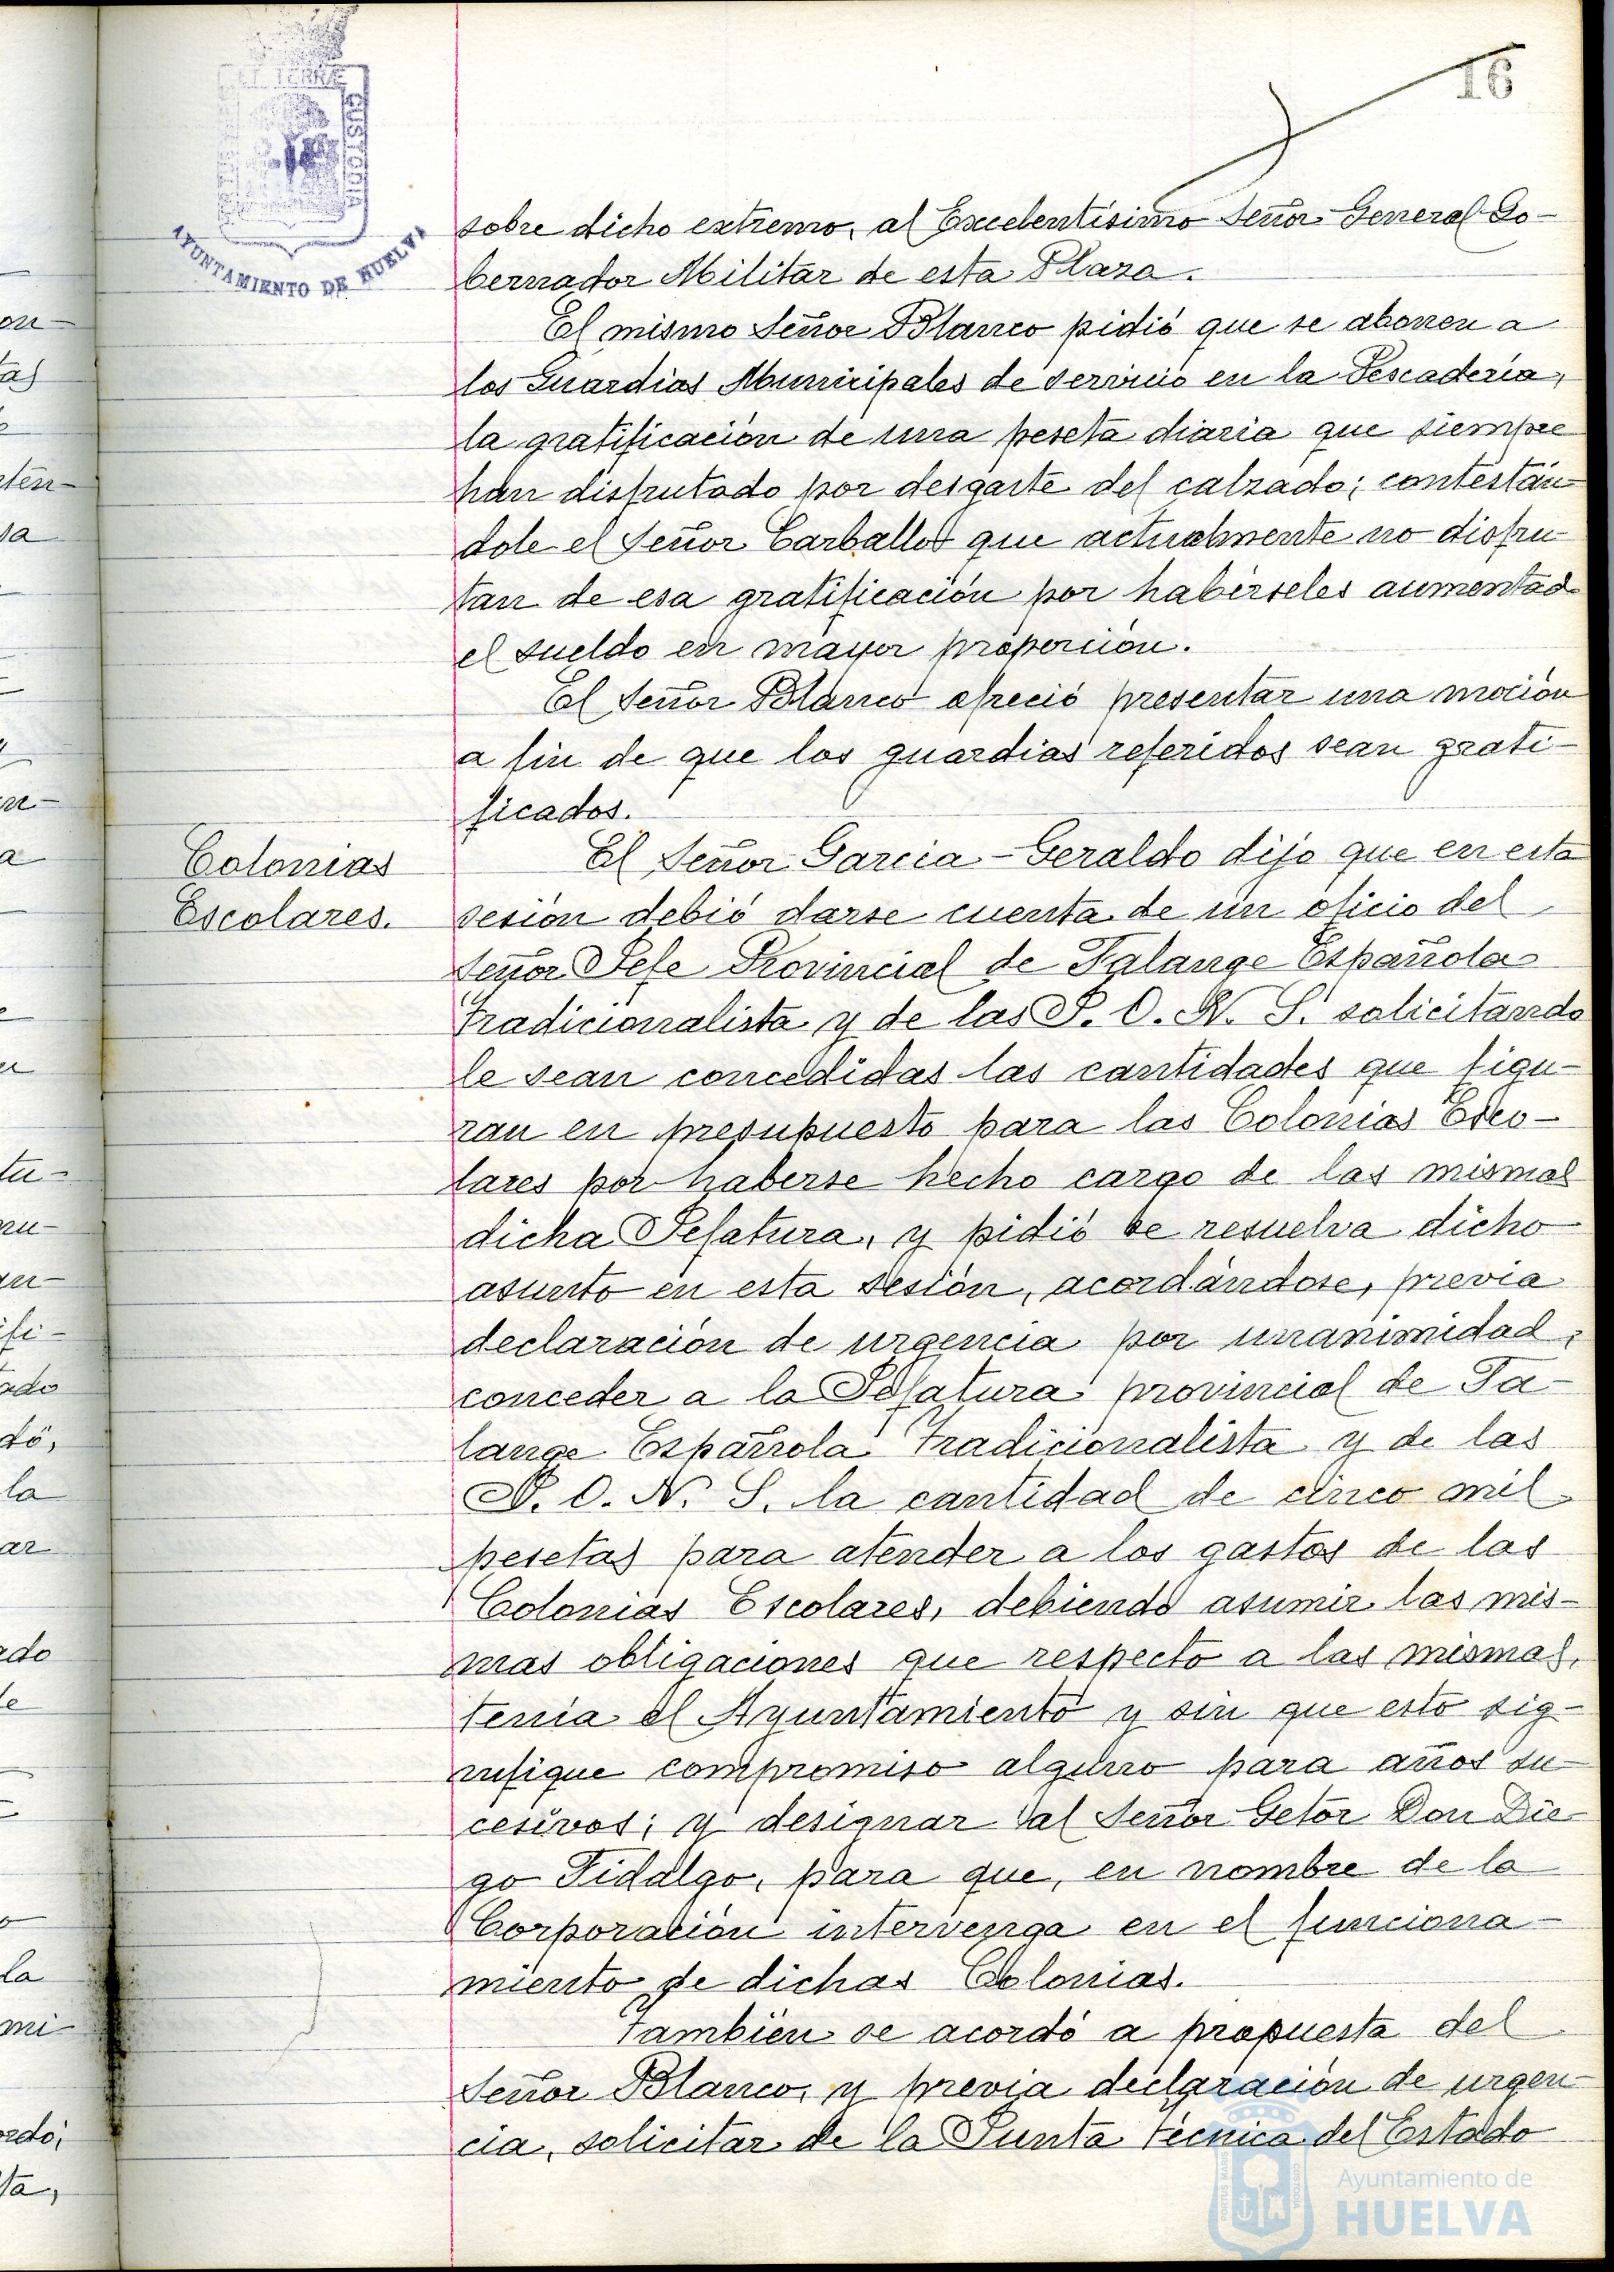 16
ET TERRÆ
CUSTODIA
AYUNTAMIENTO DE HUELVA
sobre dicho extremo, al Excelentísimo Señor General Go-
bernador Militar de esta Plaza.
El mismo Señor Blanco pidió que se abonen a
los Guardias Municipales de servicio en la Pescadería,
la gratificación de una peseta diaria que siempre
han disfrutado por desgaste del calzado; contestán-
dole el Señor Carballo que actualmente no disfru-
tan de esa gratificación por habérseles aumentado
el sueldo en mayor proporción.
El Señor Blanco ofreció presentar una moción
a fin de que los guardias referidos sean grati-
ficados.
Colonias
Escolares.
El Señor García-Geraldo dijo que en esta
sesión debió darse cuenta de un oficio del
Señor Jefe Provincial de Falange Española
Tradicionalista y de las J. O. N. S. solicitando
le sean concedidas las cantidades que figu-
ran en presupuesto para las Colonias Esco-
lares por haberse hecho cargo de las mismas
dicha Jefatura, y pidió se resuelva dicho
asunto en esta sesión, acordándose, previa
declaración de urgencia por unanimidad,
conceder a la Jefatura provincial de Fa-
lange Española Tradicionalista y de las
J. O. N. S. la cantidad de cinco mil
pesetas para atender a los gastos de las
Colonias Escolares, debiendo asumir las mis-
mas obligaciones que respecto a las mismas,
tenía el Ayuntamiento y sin que esto sig-
nifique compromiso alguno para años su-
cesivos; y designar al Señor Getor Don Die-
go Fidalgo, para que, en nombre de la
Corporación intervenga en el funciona-
miento de dichas Colonias.
También se acordó a propuesta del
Señor Blanco, y previa declaración de urgen-
cia, solicitar de la Junta Técnica del Estado
Ayuntamiento de
HUELVA